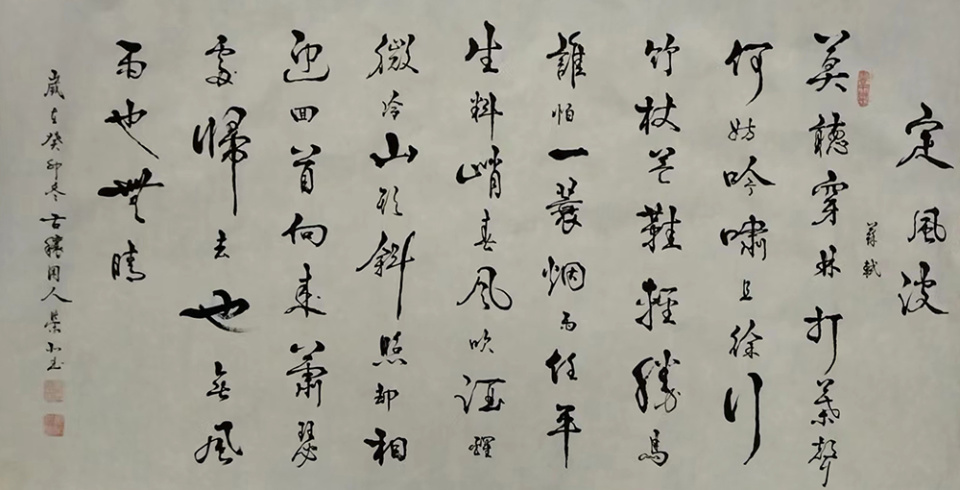 定風波
蘇軾
莫聽穿林打葉聲
何妨吟嘯且徐行
竹杖芒鞋輕勝馬
誰怕一蓑烟雨任平
生料峭春風吹酒醒
微冷山頭斜照却相
迎回首向來蕭瑟
處歸去也無風
雨也無晴
歲在癸卯冬古滕周人